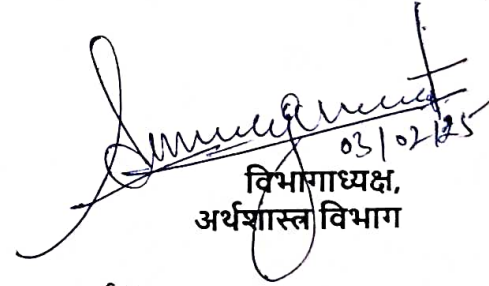 03/02/25
विभागाध्यक्ष,
अर्थशास्त्र विभाग